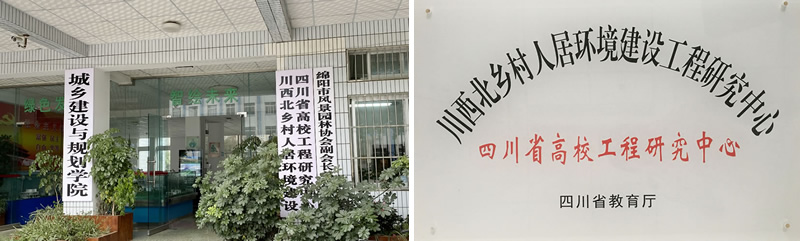 城乡建设与规划学院
绿色发
创造未来
四川省高校工程研究中心
川西北乡村人居环境建设
绵阳市风景园林协会副会长
川西北乡村人居环境建设工程研究中心
四川省高校工程研究中心
四川省教育厅